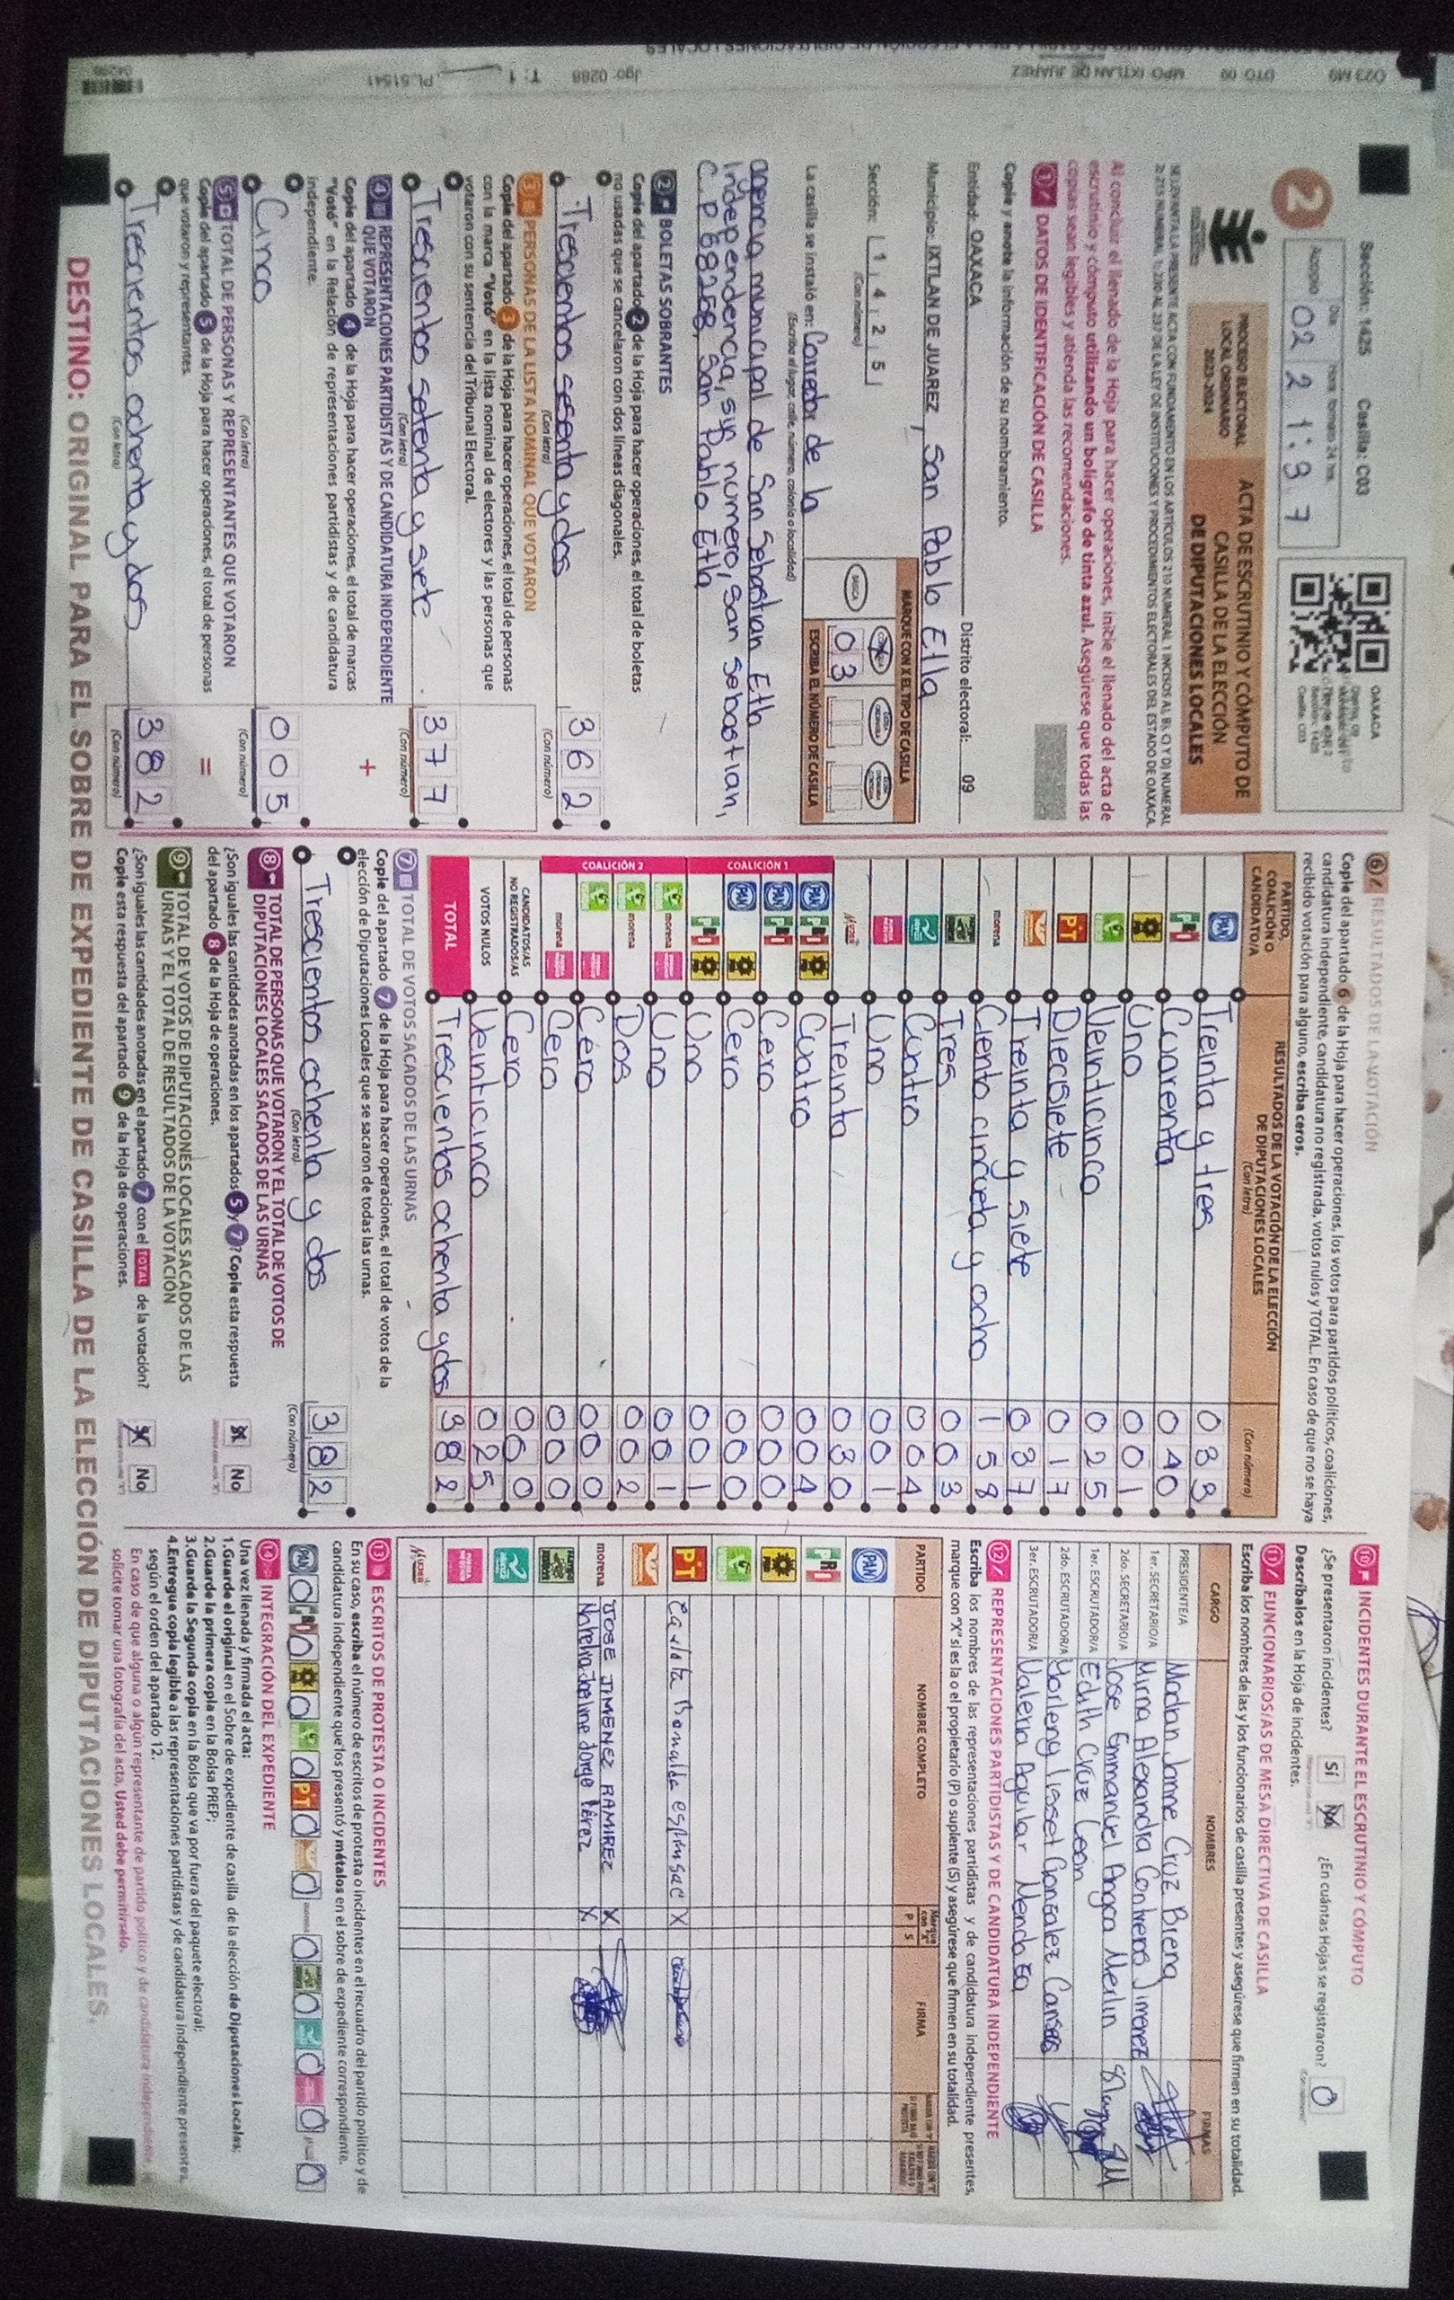 Sección: 1425 Casilla: C03
OAXACA
Acopio 02 21:37
2
PROCESO ELECTORAL
LOCAL ORDINARIO
2023-2024
ACTA DE ESCRUTINIO Y CÓMPUTO DE
CASILLA DE LA ELECCIÓN
DE DIPUTACIONES LOCALES
Al concluir el llenado de la Hoja para hacer operaciones, inicie el llenado del acta de
escrutinio y cómputo utilizando un bolígrafo de tinta azul. Asegúrese que todas las
copias sean legibles y atienda las recomendaciones.
1 DATOS DE IDENTIFICACIÓN DE CASILLA
Copie y anote la información de su nombramiento.
Entidad: OAXACA Distrito electoral: 09
Municipio: IXTLAN DE JUAREZ, San Pablo Etla
Sección: 1 4 2 5
(Con número)
MARQUE CON X EL TIPO DE CASILLA
BÁSICA
03
ESCRIBA EL NÚMERO DE CASILLA
La casilla se instaló en: Corredor de la
(Escriba el lugar, calle, número, colonia o localidad)
agencia municipal de San Sebastian Etla
Independencia, sin número, San Sebastian,
C.P 68258, San Pablo Etla
2 BOLETAS SOBRANTES
Copie del apartado 2 de la Hoja para hacer operaciones, el total de boletas
no usadas que se cancelaron con dos líneas diagonales.
Trescientos sesenta y dos 362
(Con letra) (Con número)
3 PERSONAS DE LA LISTA NOMINAL QUE VOTARON
Copie del apartado 3 de la Hoja para hacer operaciones, el total de personas
con la marca "Votó" en la lista nominal de electores y las personas que
votaron con su sentencia del Tribunal Electoral.
Trescientos setenta y siete 377
(Con letra) (Con número)
4 REPRESENTACIONES PARTIDISTAS Y DE CANDIDATURA INDEPENDIENTE
QUE VOTARON
Copie del apartado 4 de la Hoja para hacer operaciones, el total de marcas
"Votó" en la Relación de representaciones partidistas y de candidatura
independiente.
+
Cinco 005
(Con letra) (Con número)
5 TOTAL DE PERSONAS Y REPRESENTANTES QUE VOTARON
Copie del apartado 5 de la Hoja para hacer operaciones, el total de personas
que votaron y representantes.
=
Trescientos ochenta y dos 382
(Con letra) (Con número)
6 RESULTADOS DE LA VOTACIÓN
Copie del apartado 6 de la Hoja para hacer operaciones, los votos para partidos políticos, coaliciones,
candidatura independiente, candidatura no registrada, votos nulos y TOTAL. En caso de que no se haya
recibido votación para alguno, escriba ceros.
PARTIDO,
COALICIÓN O
CANDIDATO/A
RESULTADOS DE LA VOTACIÓN DE LA ELECCIÓN
DE DIPUTACIONES LOCALES
(Con letra) (Con número)
PAN Treinta y tres 033
PRI Cuarenta 040
Uno 001
Veinticinco 025
PT Diecisiete 017
Treinta y siete 037
morena Ciento cincueta y ocho 158
Tres 003
Cuatro 004
Uno 001
Treinta 030
COALICIÓN 1
PAN PRI Cuatro 004
PAN PRI Cero 000
PAN Cero 000
PRI Uno 001
COALICIÓN 2
morena Uno 001
morena Dos 002
Cero 000
morena Cero 000
CANDIDATOS/AS
NO REGISTRADOS/AS Cero 000
VOTOS NULOS Veinticinco 025
TOTAL Trescientos ochenta y dos 382
7 TOTAL DE VOTOS SACADOS DE LAS URNAS
Copie del apartado 7 de la Hoja para hacer operaciones, el total de votos de la
elección de Diputaciones Locales que se sacaron de todas las urnas.
Trescientos ochenta y dos 382
(Con letra) (Con número)
8 TOTAL DE PERSONAS QUE VOTARON Y EL TOTAL DE VOTOS DE
DIPUTACIONES LOCALES SACADOS DE LAS URNAS
¿Son iguales las cantidades anotadas en los apartados 5 y 7? Copie esta respuesta
del apartado 8 de la Hoja de operaciones.
No
9 TOTAL DE VOTOS DE DIPUTACIONES LOCALES SACADOS DE LAS
URNAS Y EL TOTAL DE RESULTADOS DE LA VOTACIÓN
¿Son iguales las cantidades anotadas en el apartado 7 con el TOTAL de la votación?
Copie esta respuesta del apartado 9 de la Hoja de operaciones.
No
10 INCIDENTES DURANTE EL ESCRUTINIO Y CÓMPUTO
¿Se presentaron incidentes? Sí No ¿En cuántas Hojas se registraron? 0
Descríbalos en la Hoja de incidentes.
11 FUNCIONARIOS/AS DE MESA DIRECTIVA DE CASILLA
Escriba los nombres de las y los funcionarios de casilla presentes y asegúrese que firmen en su totalidad.
CARGO NOMBRES FIRMAS
PRESIDENTE/A Cruz
1er. SECRETARIO/A Mirna Alexandra Contreras Jimenez
2do. SECRETARIO/A Jose Emmanuel Merlin
1er. ESCRUTADOR/A Edith Cruz
2do. ESCRUTADOR/A Gonzalez
3er. ESCRUTADOR/A Valeria Aguilar Mendoza
12 REPRESENTACIONES PARTIDISTAS Y DE CANDIDATURA INDEPENDIENTE
Escriba los nombres de las representaciones partidistas y de candidatura independiente presentes,
marque con "X" si es la o el propietario (P) o suplente (S) y asegúrese que firmen en su totalidad.
PARTIDO NOMBRE COMPLETO P S FIRMA
PAN
PRI
PT Carlota X
morena JOSE JIMENEZ RAMIREZ X
Jorge Pérez X
13 ESCRITOS DE PROTESTA O INCIDENTES
En su caso, escriba el número de escritos de protesta o incidentes en el recuadro del partido político y de
candidatura independiente que los presentó y métalos en el sobre de expediente correspondiente.
PAN 0 PRI 0 0 0 PT 0 0 0 0 0 0 0
14 INTEGRACIÓN DEL EXPEDIENTE
Una vez llenada y firmada el acta:
1.Guarde el original en el Sobre de expediente de casilla de la elección de Diputaciones Locales;
2.Guarde la primera copia en la Bolsa PREP;
3.Guarde la Segunda copia en la Bolsa que va por fuera del paquete electoral;
4.Entregue copia legible a las representaciones partidistas y de candidatura independiente presentes,
según el orden del apartado 12.
En caso de que alguna o algún representante de partido político y de candidatura independiente
solicite tomar una fotografía del acta, Usted debe permitírselo.
DESTINO: ORIGINAL PARA EL SOBRE DE EXPEDIENTE DE CASILLA DE LA ELECCIÓN DE DIPUTACIONES LOCALES.